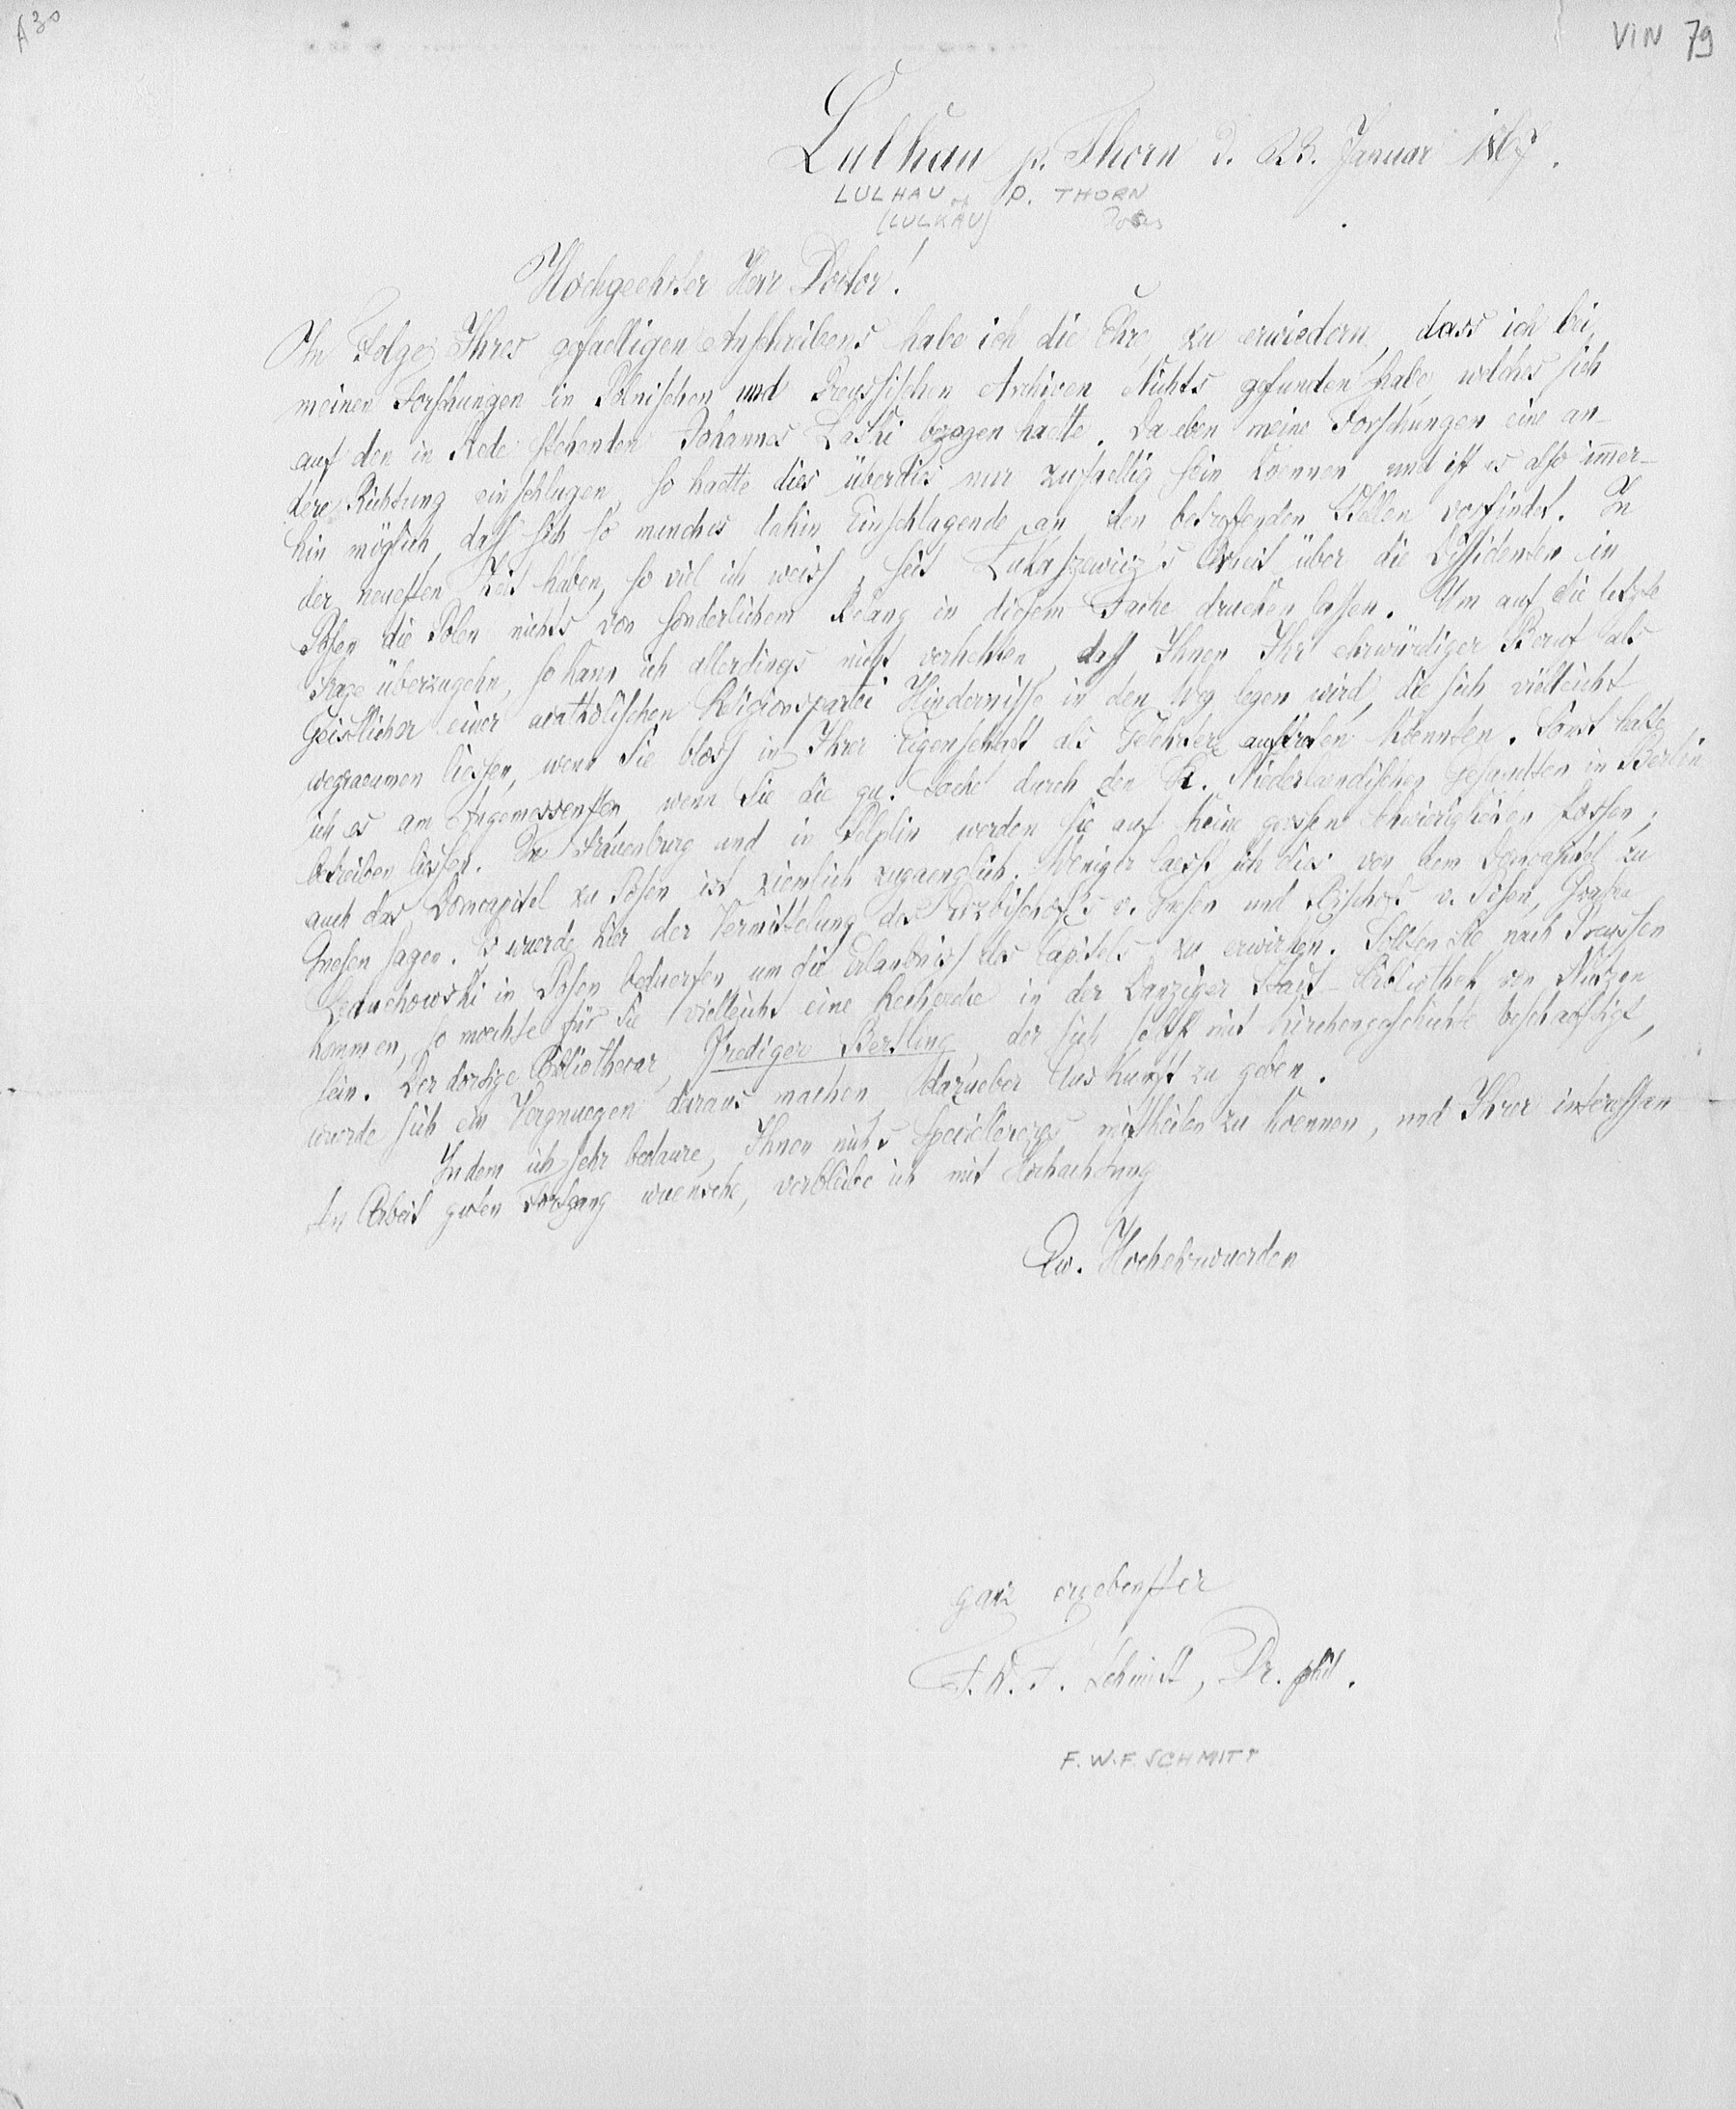 A 30
VIN 79
Lulkau p. Thorn d. 23. Januar 1867.
LULHAU of P. THORN
(LULKAU) Polen
Hochgeehrter Herr Doctor!
In Folge Ihres gefaelligen Anschreibens habe ich die Ehre zu erwiedern, dass ich bei
meinen Forschungen in Polnischen und Preussischen Archiven Nichts gefunden habe, welches sich
auf den in Rede stehenden Johannes Laski bezogen haette. Da eben meine Forschungen eine an-
dere Richtung einschlugen, so haette dies überdies nur zufaellig sein koennen und ist es also immer-
hin möglich, dass sich so manches dahin Einschlagende an den betreffenden Stellen vorfindet. In
der neuesten Zeit haben, so viel ich weiss, seit Lukaszewicz's Arbeit über die Dissidenten in
Posen die Polen nichts von sonderlichem Belang in diesem Fache drucken lassen. Um auf die letzte
Frage überzugehn, so kann ich allerdings nicht verhehlen, dass Ihnen Ihr ehrwürdiger Beruf als
Geistlicher einer acatholischen Religionspartei Hindernisse in den Weg legen wird, die sich vielleicht
wegraeumen liessen, wenn Sie bloss in Ihrer Eigenschaft als Gelehrter auftreten koennten. Sonst halte
ich es am Angemessensten, wenn Sie die qu. Sache durch den K. Niederlaendischen Gesandten in Berlin
betreiben liessen. In Frauenburg und in Pelplin werden Sie auf keine grossen Schwierigkeiten stossen;
auch das Domcapitel zu Posen ist ziemlich zugaenglich. Weniger laesst sich dies von dem Domcapitel zu
Gnesen sagen. Es wuerde hier der Vermittelung des Erzbischofs v. Gnesen und Bischofs v. Posen, Grafen
Leduchowski in Posen beduerfen, um die Erlaubniss des Capitels zu erwirken. Sollten Sie nach Preussen
kommen, so moechte für Sie vielleicht eine Recherche in der Danziger Stadt-Bibliothek von Nutzen
sein. Der dortige Bibliothecar, Prediger Bertling, der sich selbst mit Kirchengeschichte beschaeftigt,
wuerde sich ein Vergnuegen daraus machen, darueber Auskunft zu geben.
Indem ich sehr bedaure, Ihnen nichts Speciellereres mittheilen zu koennen, und Ihrer interessan
ten Arbeit guten Fortgang wuensche, verbleibe ich mit Hochachtung
Ew. Hochehrwuerden
ganz ergebenster
F. W. F. Schmitt, Dr. phil.
F. W. F. SCHMITT